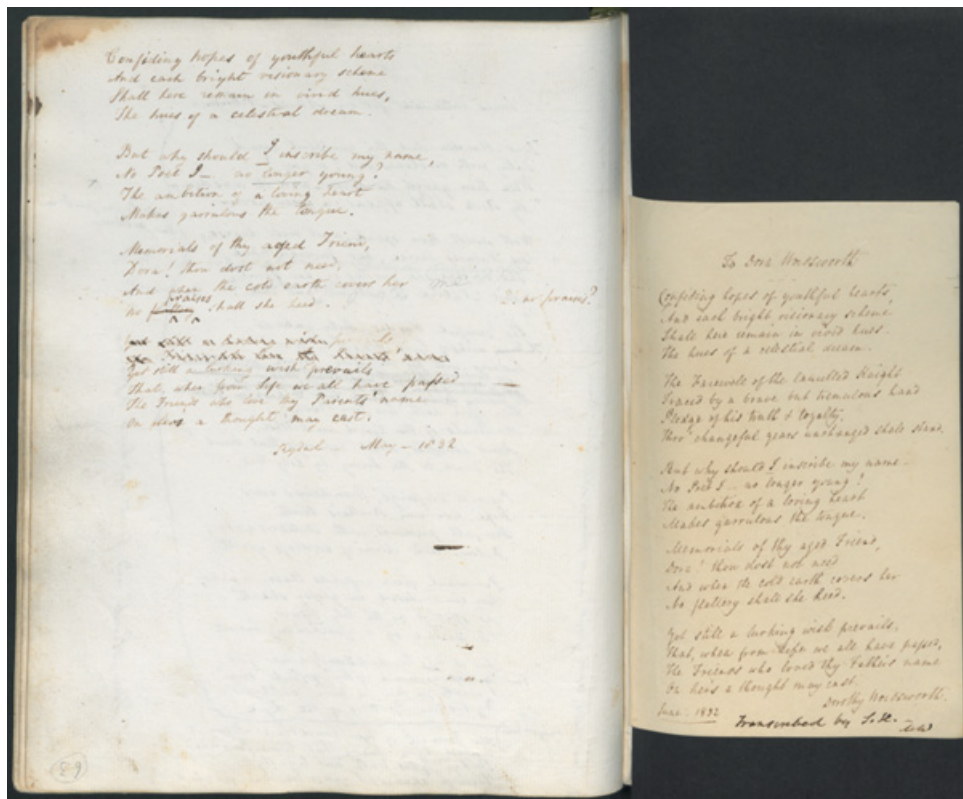 Confiding hopes of youthful hearts
And each bright visionary scheme
Shall here remain in vivid hues,
The hues of a celestial dream.
But why should I inscribe my name,
No Poet I — no longer young?
The ambition of a loving heart
Makes garrulous the tongue.
Memorials of thy aged Friend,
Dora! thou dost not need,
And when the cold earth covers her
praises
No flattery shall she heed.
D: no praises?
Yet still a lurking wish prevails
That, when from Life we all have passed
The Friends who love thy Parents' name
On her's a thought may cast.
Rydal — May — 1832
63
To Dora Wordsworth
Confiding hopes of youthful hearts,
And each bright visionary scheme
Shall here remain in vivid hues.
The hues of a celestial dream.
The Farewell of the laurelled Knight
Traced by a brave but tremulous hand
Pledge of his truth & loyalty,
Thro' changeful years unchanged shall stand.
But why should I inscribe my name —
No Poet I — no longer young?
The ambition of a loving heart
Makes garrulous the tongue.
Memorials of thy aged Friend,
Dora! thou dost not need
And when the cold earth covers her
No flattery shall she heed.
Yet still a lurking wish prevails,
That, when from Life we all have passed,
The Friends who loved thy Father's name
On her's a thought may cast.
Dorothy Wordsworth.
June. 1832
Transcribed by S.H. —